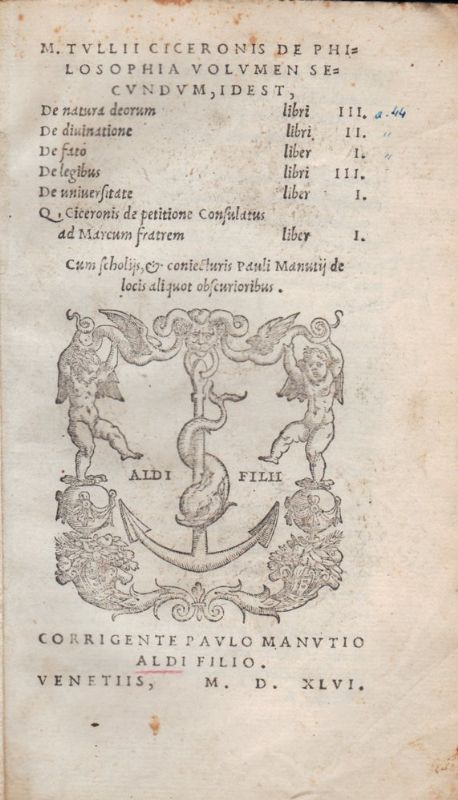 M. TVLLII CICERONIS DE PHI=
LOSOPHIA VOLVMEN SE=
CVNDVM, IDEST,
De natura deorum libri III. a. 44
De diuinatione libri II. "
De fato liber I. "
De legibus libri III.
De uniuersitate liber I.
Q. Ciceronis de petitione Consulatus
ad Marcum fratrem liber I.
Cum scholijs, & coniecturis Pauli Manutij de
locis aliquot obscurioribus.
ALDI FILII
CORRIGENTE PAVLO MANVTIO
ALDI FILIO.
VENETIIS, M. D. XLVI.